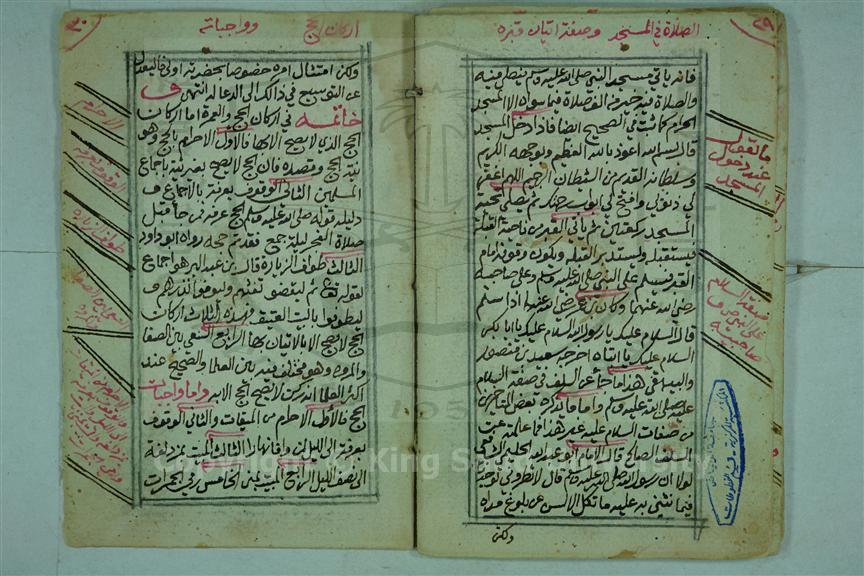 الصلاة في المسجد وصفة اتيان قبره
٢٩
فانه يأتي مسجد النبي صلى الله عليه وسلم فيصلي فيه
والصلاة فيه خير من الف صلاة فيما سواه الا المسجد
الحرام كما ثبت في الصحيح ايضا فاذا دخل المسجد
قال بسم الله اعوذ بالله العظيم وبوجهه الكريم
وسلطانه القديم من الشيطان الرجيم اللهم اغفر
لي ذنوبي وافتح لي ابواب رحمتك ثم يصلي تحية
المسجد ركعتين ثم يأتي القبر من ناحية القبلة
فيستقبله ويستدبر القبلة ويكون وقوفه امام
القبر فيسلم على النبي صلى الله عليه وسلم وعلى صاحبيه
رضي الله عنهما وكان ابن عمر رضي الله عنهما اذا سلم
قال السلام عليك يا رسول الله السلام عليك يا ابا بكر
السلام عليك يا ابتاه اخرجه سعيد بن منصور
والبيهقي هذا ما جا عن السلف في صفة السلام
عليه صلى الله عليه وسلم واما ما يذكره بعض المتأخرين
من صفات السلام عليه غير هذا فما علمته عن
السلف الصالح قال الامام ابو عبد الله الحليمي
لولا ان رسول الله صلى الله عليه وسلم قال لا تطروني لوجدنا
فيما نثني به عليه ما تكل الالسن عن بلوغ مداه
ولكن
ما يقول
عند دخول
المسجد
صفة السلام
على النبي ص
صاحبيه
اركان الحج وواجباته
٣٠
ولكن امتثال امره خصوصا بحضرته اولى فاليعدل
عن التوسيع في ذلك الى الدعا له انتهى ف
خاتمه في اركان الحج والعمرة اما اركان
الحج الذي لا يصح الا بها فالاول الاحرام بالحج وهو
نية الحج وقصده فان الحج لا يصح بغير نية باجماع
المسلمين الثاني الوقوف بعرفة بالاجماع ف
دليله قوله صلى الله عليه وسلم الحج عرفة فمن جا قبل
صلاة الفجر ليلة جمع فقد تم حجه رواه ابو داود
الثالث طواف الزيارة قال بن عبد البر هو اجماع
لقوله تعالى ثم ليقضوا تفثهم وليوفوا نذورهم
ليطوفوا بالبيت العتيق فهذه الثلاث اركان
الحج لا يصح الا بالاتيان بها الرابع السعي بين الصفا
والمروه وهو مختلف فيه بين العلما والصحيح عند
اكثر العلما انه ركن لا يصح الحج الا به واما واجبات
الحج فالاول الاحرام من الميقات والثاني الوقوف
بعرفة الى الليل لمن وافا نهارا الثالث المبيت بمزدلفة
الى نصف الليل الرابع المبيت بمنى الخامس رمي الجمرات
الاحرام
الوقوف بعرفه
طواف الزياره
السعي بين الصفا
Copyright © King Saud University
1957